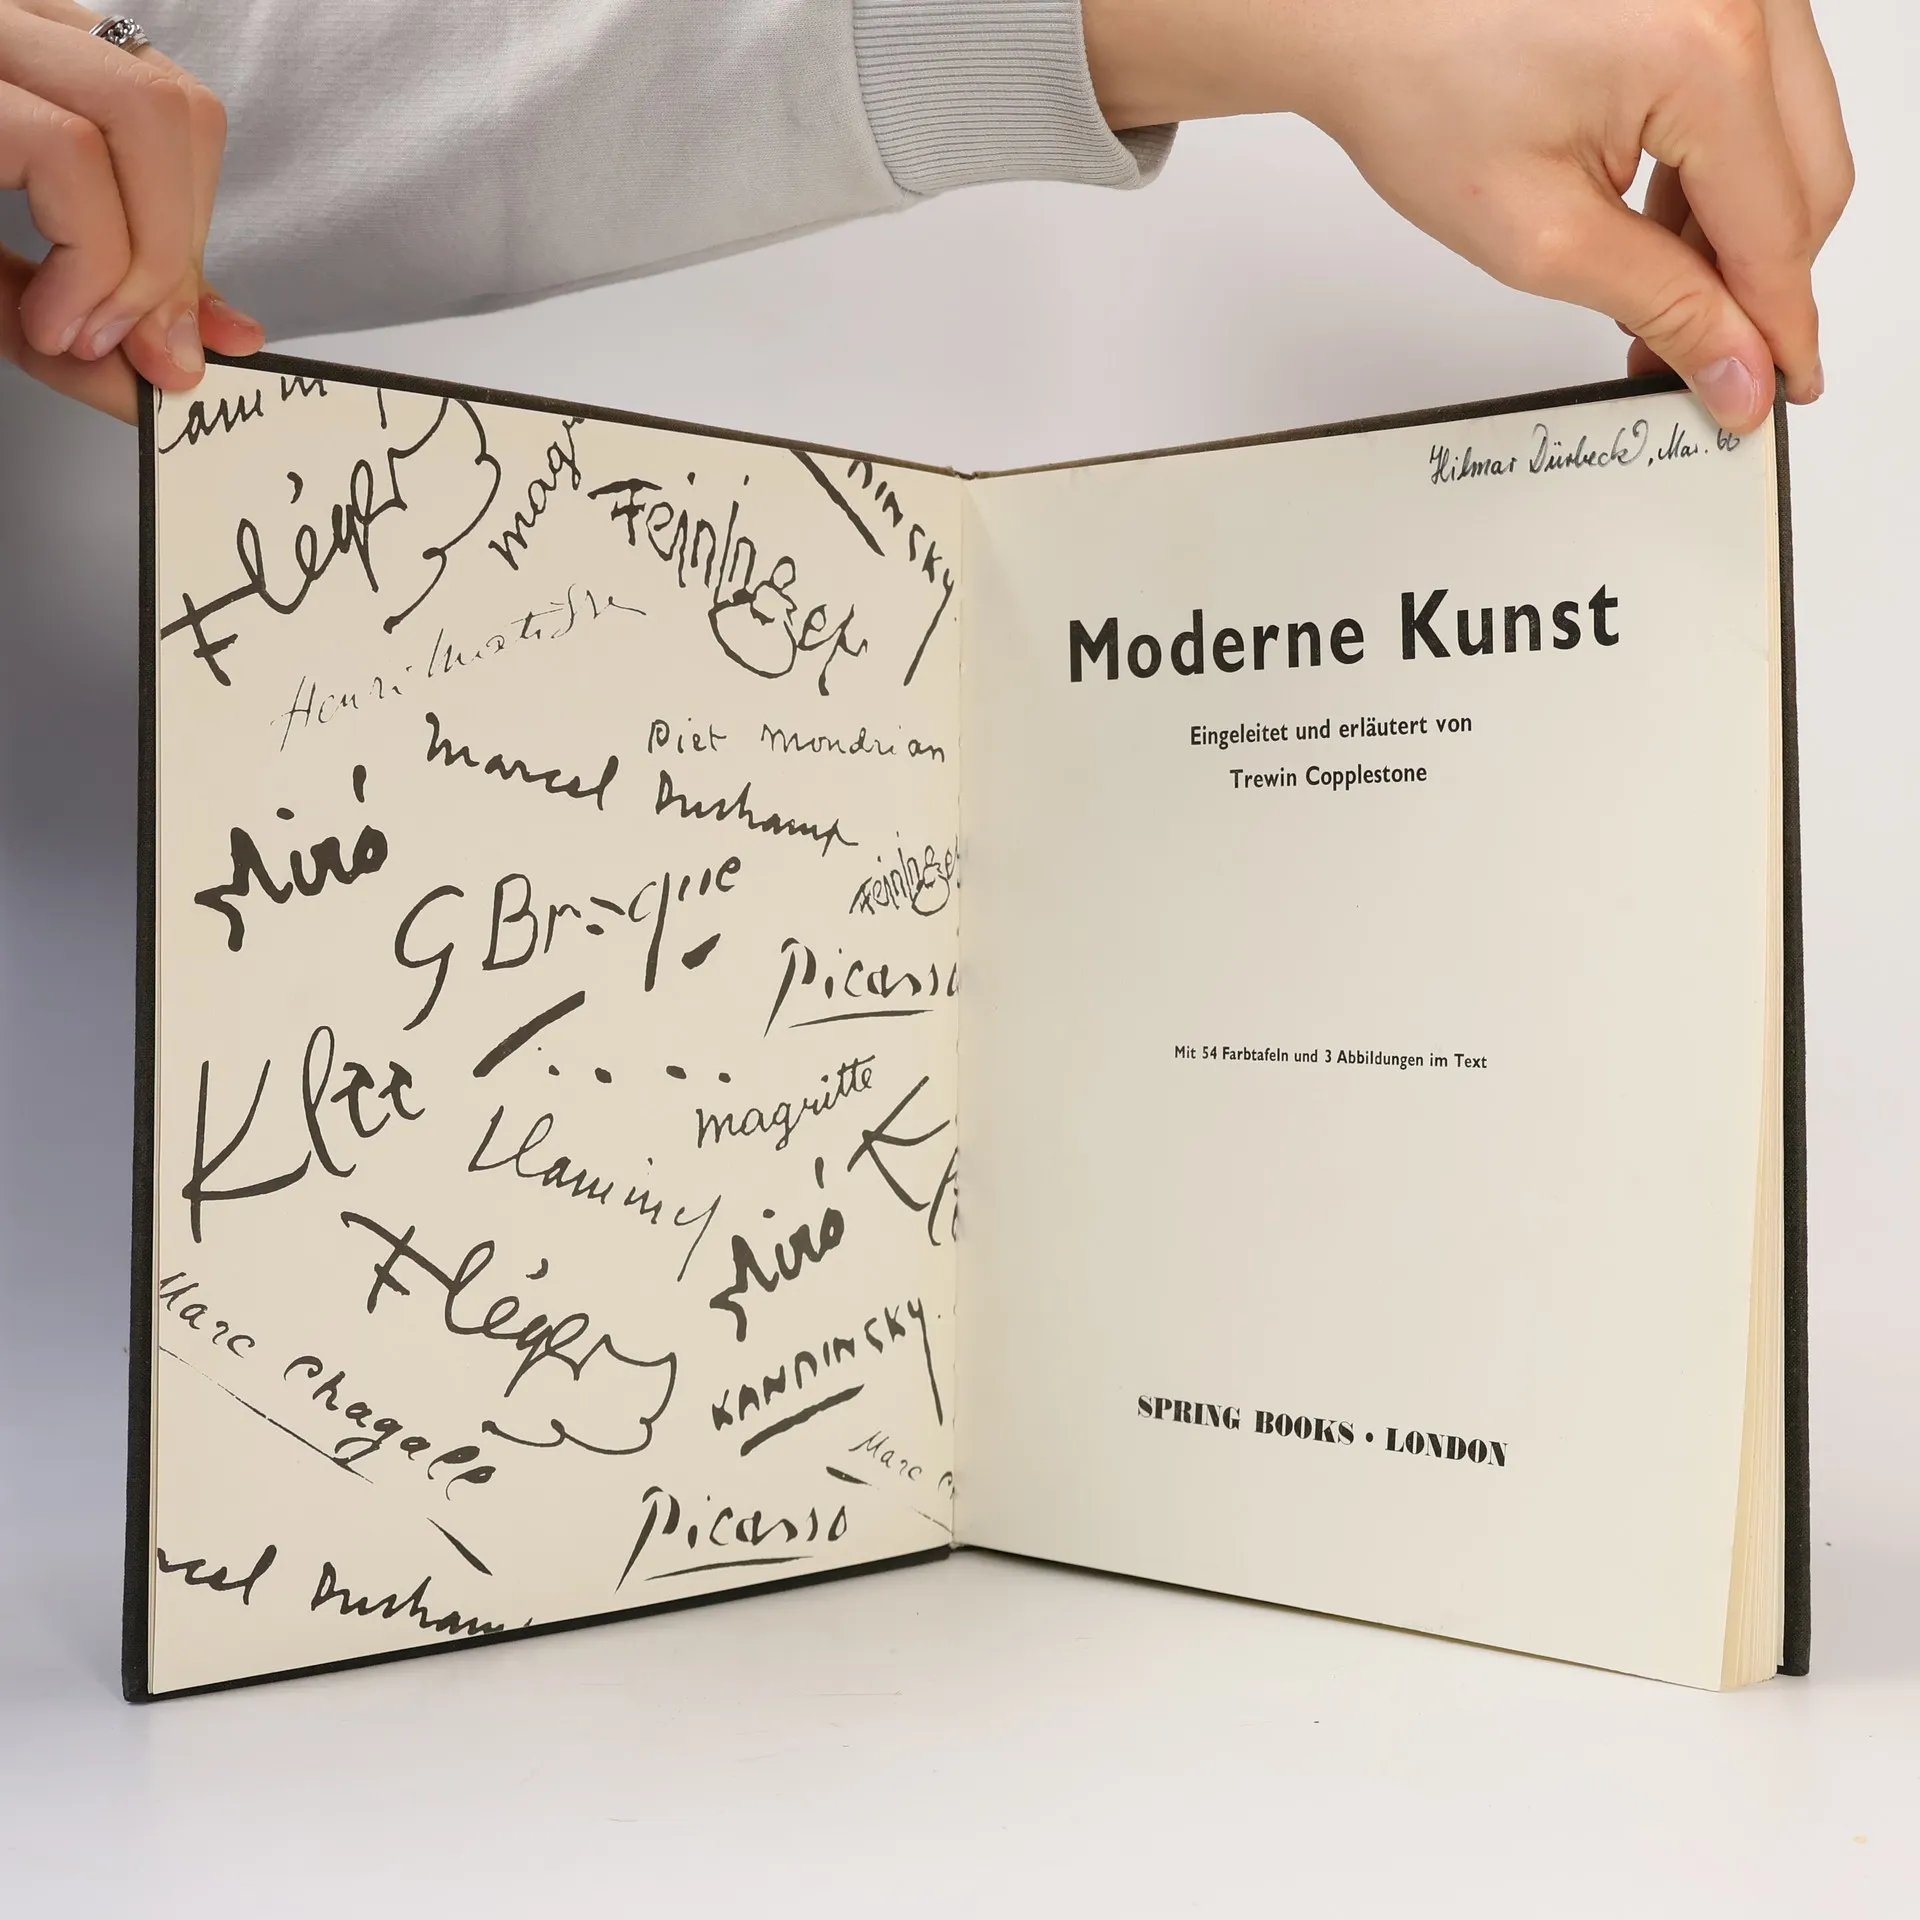 Vlaminck
FLéger
magr
Feininger
NINSKY
Henri Matisse
Piet Mondrian
Marcel Duchamp
Miró
G Braque
Feininger
Picasso
Klee
magritte
Kl
Vlaminck
Miró
FLéger
Marc Chagall
KANDINSKY
Marc C
Picasso
rcel Ducham
Hilmar Dürbeck, Mar. 66
Moderne Kunst
Eingeleitet und erläutert von
Trewin Copplestone
Mit 54 Farbtafeln und 3 Abbildungen im Text
SPRING BOOKS • LONDON